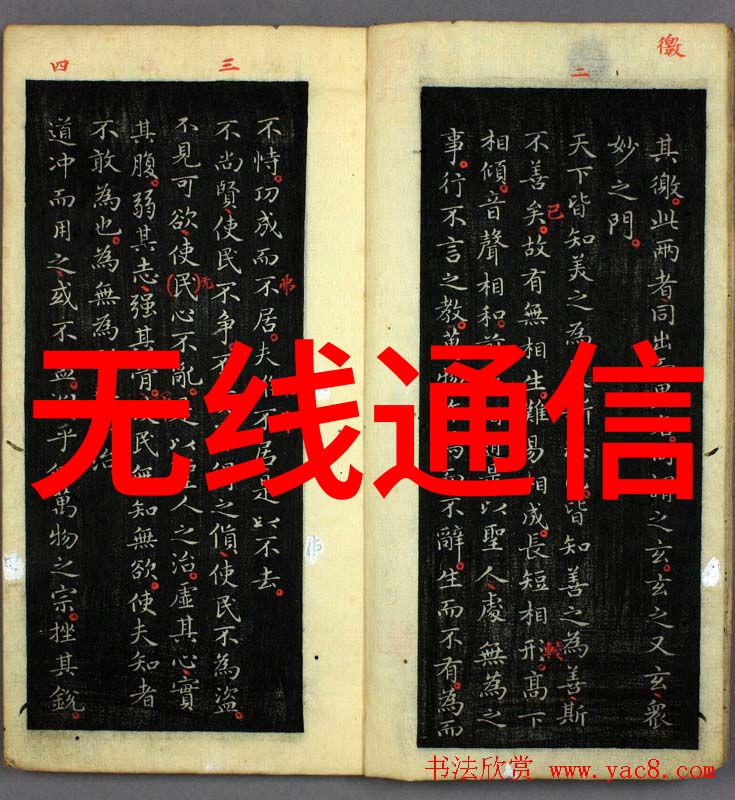 徼
二
其徼。此兩者同出
之玄。玄之又玄、衆
妙之門。
天下皆知美之為
皆知善之為善斯
不善矣。故有無相生。難易相成。長短相形。高下
已
較
相傾。音聲相和。
是以聖人處無為之
事。行不言之教。萬物
而不辭。生而不有。為而
三
四
不恃。功成而不居。夫
不居。是以不去。
不尚賢、使民不争。不
得之貨、使民不為盜。
不見可欲、使(民)心不亂。
人之治。虛其心、實
其腹。弱其志、强其骨。
民無知無欲。使夫知者
不敢為也。為無為
治
道冲而用之、或不盈。
乎
萬物之宗。挫其銳。
无线通信
书法欣赏 www.yac8.com